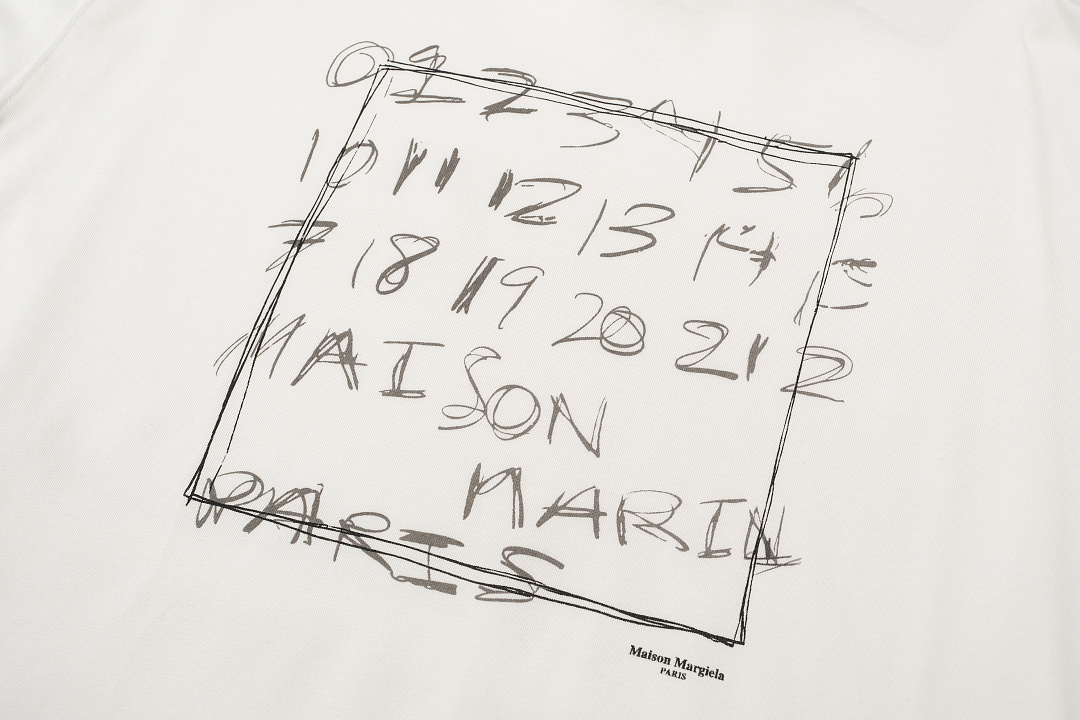 0 1 2 3 4 5
10 11 12 13 14 15
7 18 19 20 21 2
MAISON
MARIN
PARIS
Maison Margiela
PARIS